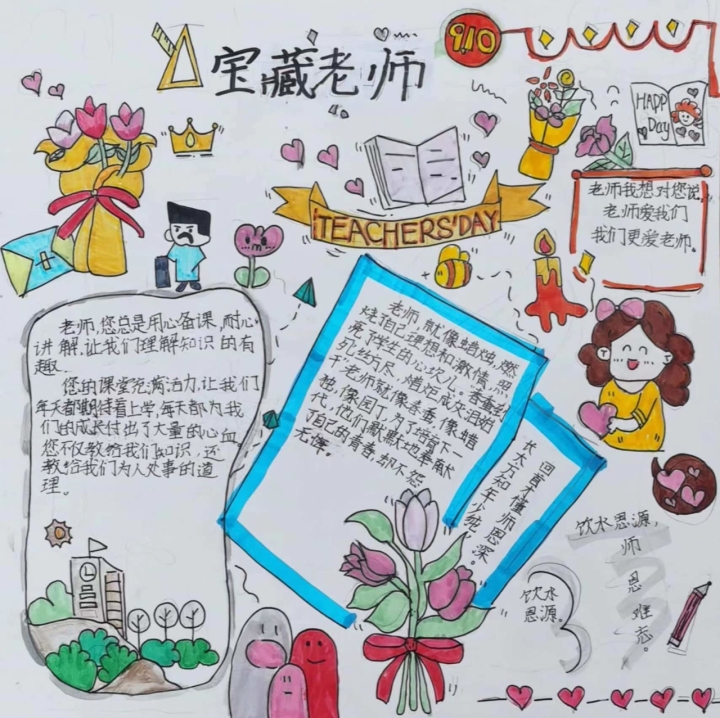 宝藏老师
9.10
HAPP
Day
TEACHERS'DAY
老师我想对您说,
老师爱我们
我们更爱老师。
老师,您总是用心备课,耐心
讲解,让我们理解知识的有
趣。
您的课堂充满活力,让我们
每天都期待着上学,每天都为我
们的成长付出了大量的心血
您不仅教给我们知识,还
教给我们为人处事的道
理。
老师就像蜡烛,燃
烧自己理想和激情,照
亮了学生的心坎儿。春蚕到
死丝方尽,蜡炬成灰泪始
干,老师就像春蚕,像蜡
烛,像园丁,为了培育下一
代,他们默默地奉献
了自己的青春,却不怨
无悔。
回首才懂师恩深。
方知年少纯。
饮水
思源。
饮水思源,
师恩难忘。